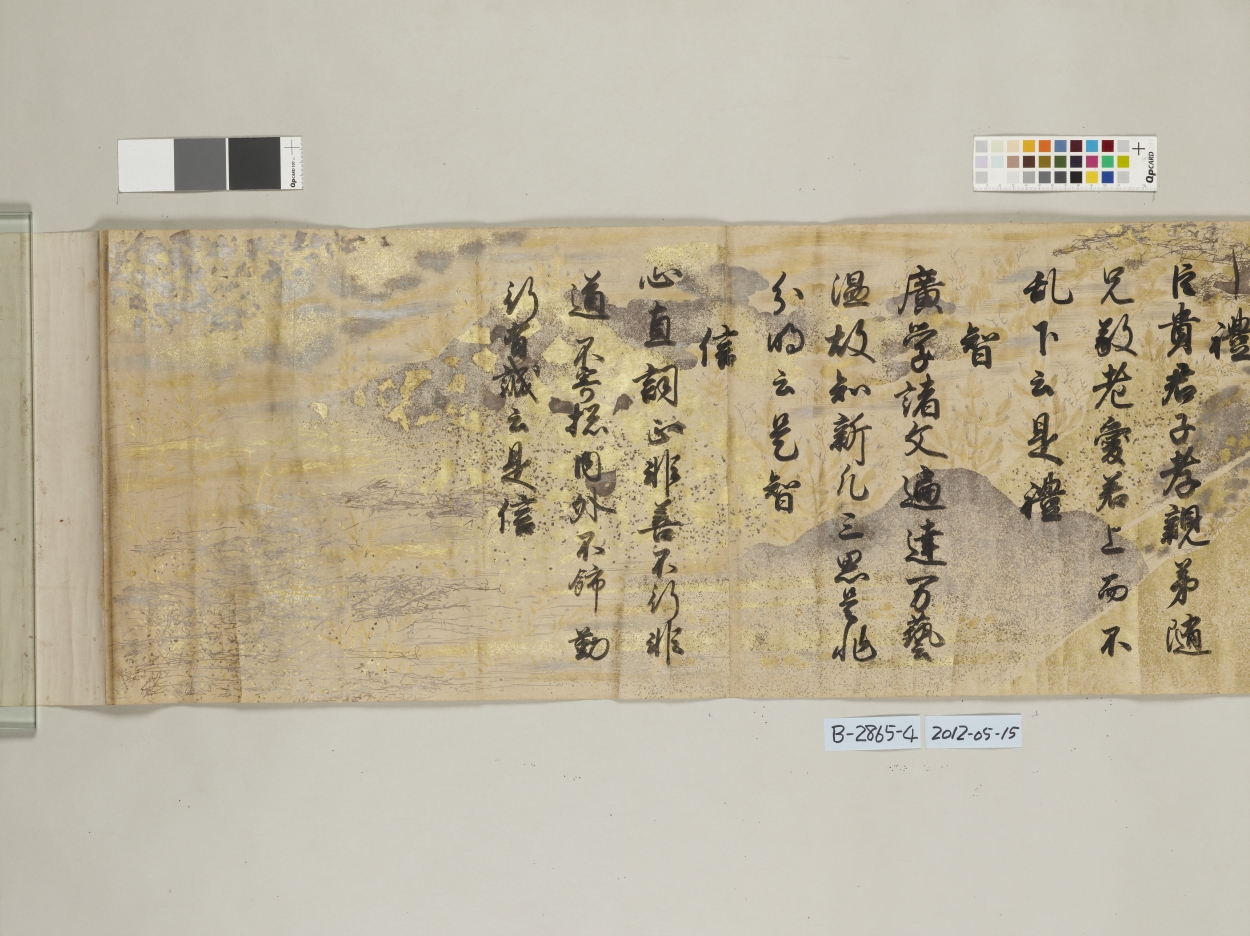 禮
臣貴君子孝親弟隨
兄敬老愛若上而不
乱下云是禮
智
廣学諸文遍達万藝
温故知新凡三思是非
分明云是智
信
心直詞正非善不行非
道不言㧾内外不飾勤
行有誠云是信
B-2865-4
2012-05-15
QPCARD
QPCARD